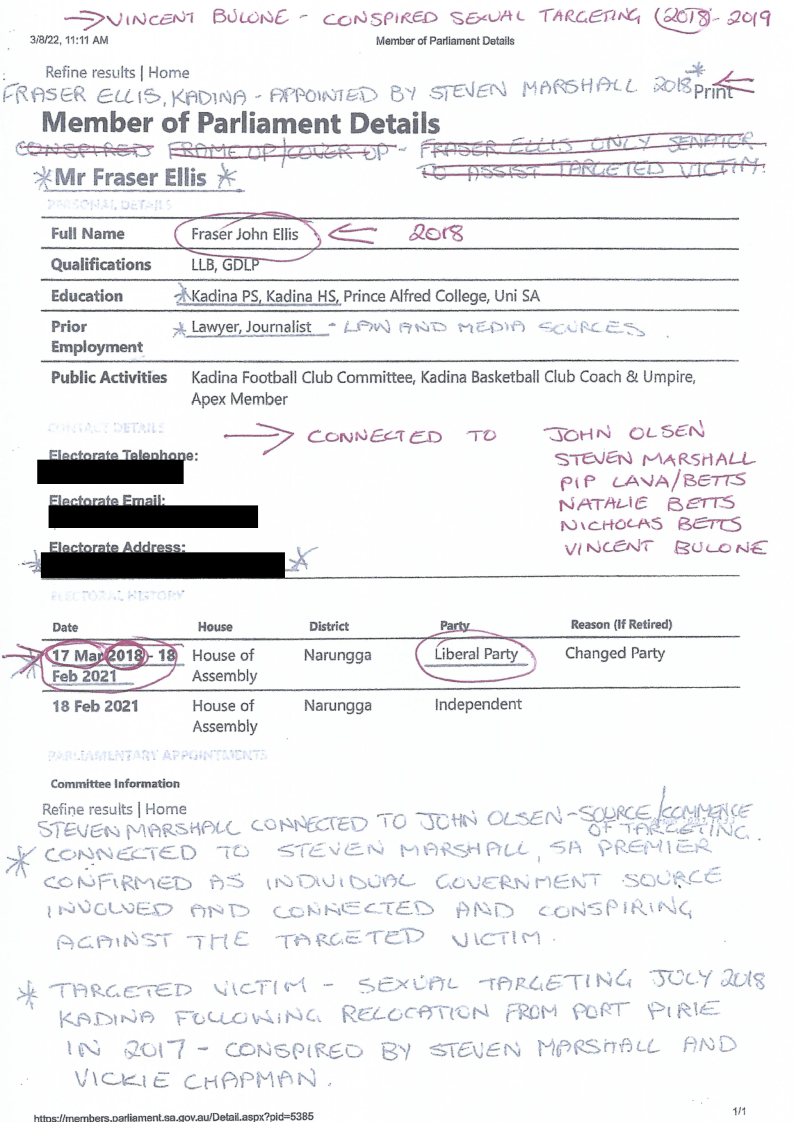 → VINCENT BULONE - CONSPIRED SEXUAL TARGETING (2018)- 2019
3/8/22, 11:11 AM Member of Parliament Details
Refine results | Home
FRASER ELLIS, KADINA - APPOINTED BY STEVEN MARSHALL 2018 Print
Member of Parliament Details
CONSPIRED FRAME UP/COVER UP - FRASER ELLIS ONLY SENATOR
TO ASSIST TARGETED VICTIM.
Mr Fraser Ellis
PERSONAL DETAILS
Full Name Fraser John Ellis ← 2018
Qualifications LLB, GDLP
Education Kadina PS, Kadina HS, Prince Alfred College, Uni SA
Prior Employment Lawyer, Journalist - LAW AND MEDIA SOURCES
Public Activities Kadina Football Club Committee, Kadina Basketball Club Coach & Umpire,
Apex Member
CONTACT DETAILS
→ CONNECTED TO JOHN OLSEN
STEVEN MARSHALL
PIP LAVA/BETTS
NATALIE BETTS
NICHOLAS BETTS
VINCENT BULONE
Electorate Telephone:
Electorate Email:
Electorate Address:
ELECTORAL HISTORY
Date House District Party Reason (If Retired)
17 Mar 2018 - 18 House of Narungga Liberal Party Changed Party
Feb 2021 Assembly
18 Feb 2021 House of Narungga Independent
Assembly
PARLIAMENTARY APPOINTMENTS
Committee Information
Refine results | Home
STEVEN MARSHALL CONNECTED TO JOHN OLSEN - SOURCE/COMMENCE
OF TARGETING.
CONNECTED TO STEVEN MARSHALL, SA PREMIER
CONFIRMED AS INDIVIDUAL GOVERNMENT SOURCE
INVOLVED AND CONNECTED AND CONSPIRING
AGAINST THE TARGETED VICTIM.
TARGETED VICTIM - SEXUAL TARGETING JULY 2018
KADINA FOLLOWING RELOCATION FROM PORT PIRIE
IN 2017 - CONSPIRED BY STEVEN MARSHALL AND
VICKIE CHAPMAN.
https://members.parliament.sa.gov.au/Detail.aspx?pid=5385 1/1